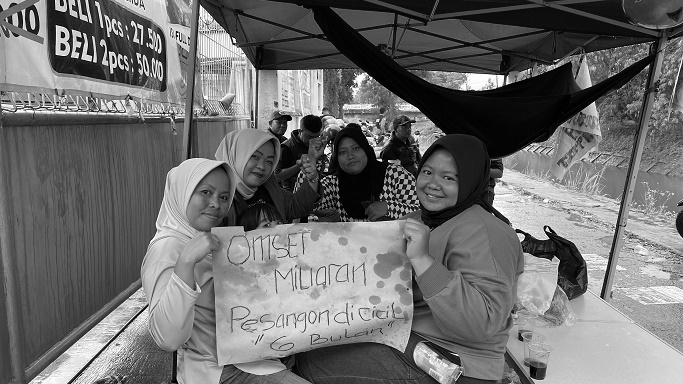 BELI 1pcs : 27.500
BELI 2pcs : 50.000
OMSET
MILIARAN
Pesangon di cicil
"6 Bulan"